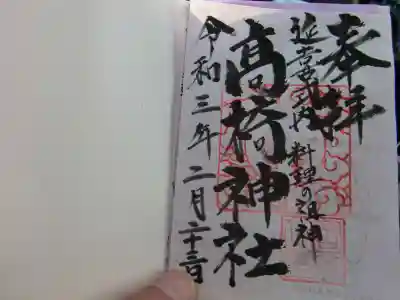 奉拝
延喜式内 料理の祖神
高橋神社
令和三年二月二十三日